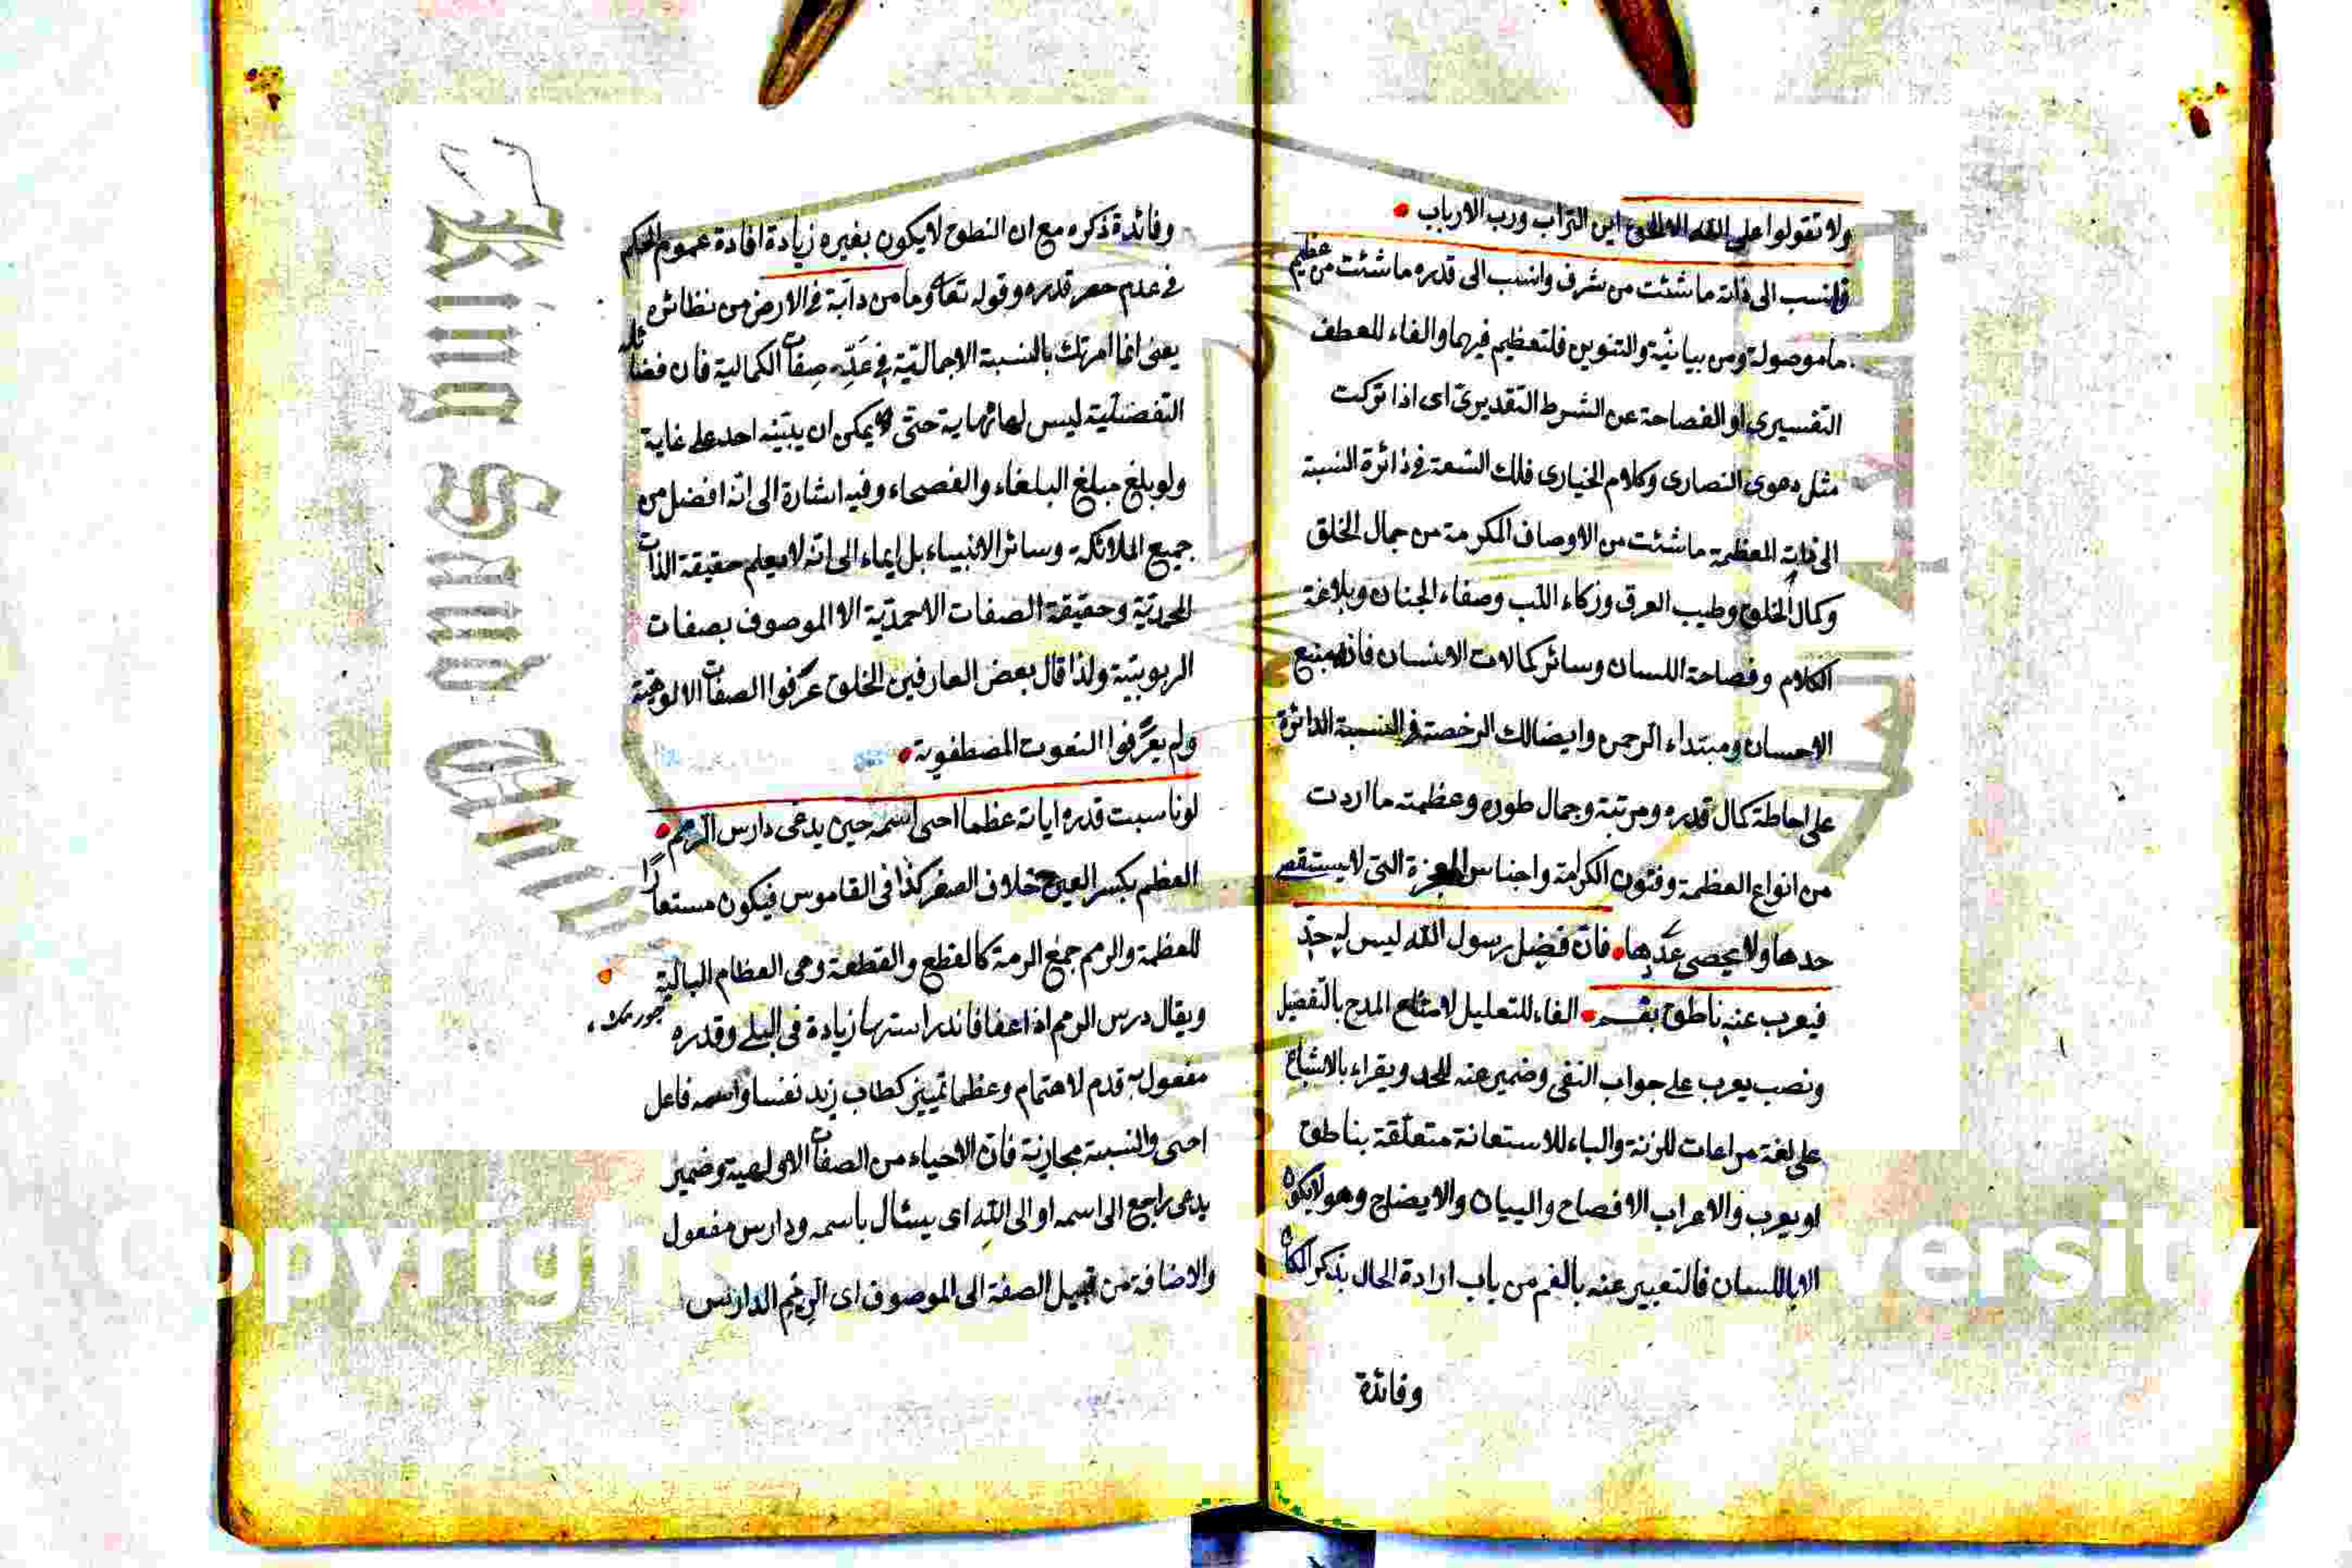 ولا تقولوا على الله الا الحق اين التراب ورب الارباب
وانسب الى ذاته ما شئت من شرف وانسب الى قدره ما شئت من عظيم
ما موصولة ومن بيانية والتنوين فلتعظيم فيهما والفاء للعطف
التفسيرى او الفصاحة عن الشرط التقديرى اى اذا تركت
مثل دعوى النصارى وكلام الخيارى فلك السعة فى دائرة النسبة
الى ذاته المعظمة ما شئت من الاوصاف المكرمة من جمال الخلق
وكمال الخلق وطيب العرق وزكاء اللب وصفاء الجنان وبلاغة
الكلام وفصاحة اللسان وسائر كمالات الانسان فانه منبع
الاحسان ومبتداء الرحمن وايضا لك الرخصة فى النسبة الدائرة
على احاطة كمال قدره ومرتبة وجمال طوره وعظمته ما اردت
من انواع العظمة وفنون الكرامة واجناس المعجزة التى لا يستقصى
حدها ولا يحصى عدها فان فضل رسول الله ليس له حد
فيعرب عنه ناطق بفم الفاء للتعليل لامتناع المدح بالتفضيل
ونصب يعرب على جواب النفى وضمير عنه للحد ويقراء بالاشباع
على لغة مراعات للزنة والباء للاستعانة متعلقة بناطق
او يعرب والاعراب الافصاح والبيان والايضاح وهو لا يكون
الا باللسان فالتعبير عنه بالفم من باب ارادة الحال بذكر المكان
وفائدة
وفائدة ذكره مع ان النطق لا يكون بغيره زيادة افادة عموم الحكم
فى عدم حصر قدره وقوله تعا وما من دابة فى الارض من نظائره
يعنى انما امرتك بالنسبة الاجمالية فى عد صفات الكمالية فان فضائله
التفضلية ليس لها نهاية حتى لا يمكن ان يبينه احد على غاية
ولو بلغ مبلغ البلغاء والفصحاء وفيه اشارة الى انه افضل من
جميع الملائكة وسائر الانبياء بل ايماء الى انه لا يعلم حقيقة الذات
المحمدية وحقيقة الصفات الاحمدية الا الموصوف بصفات
الربوبية ولذا قال بعض العارفين الخلق عرفوا الصفات الالوهية
ولم يعرفوا النعوت المصطفوية
لو ناسبت قدره اياته عظما احيى اسمه حين يدعى دارس الرمم
العظم بكسر العين خلاف الصغر كذا فى القاموس فيكون مستعارا
للعظمة والرمم جمع الرمة كالقطع والقطعة وهى العظام البالية
ويقال درس الرمم اذا عفا فاندراستها زيادة فى البلى وقدره
مفعول به قدم لاهتمام وعظما تمييز كطاب زيد نفسا واسمه فاعل
احيى والنسبة مجازية فان الاحياء من الصفات الالوهية وضمير
يدعى راجع الى اسمه او الى الله اى يسئال باسمه ودارس مفعول
والاضافة من قبيل الصفة الى الموصوف اى الرمم الدارس
King Saud Univ
Copyright
versity